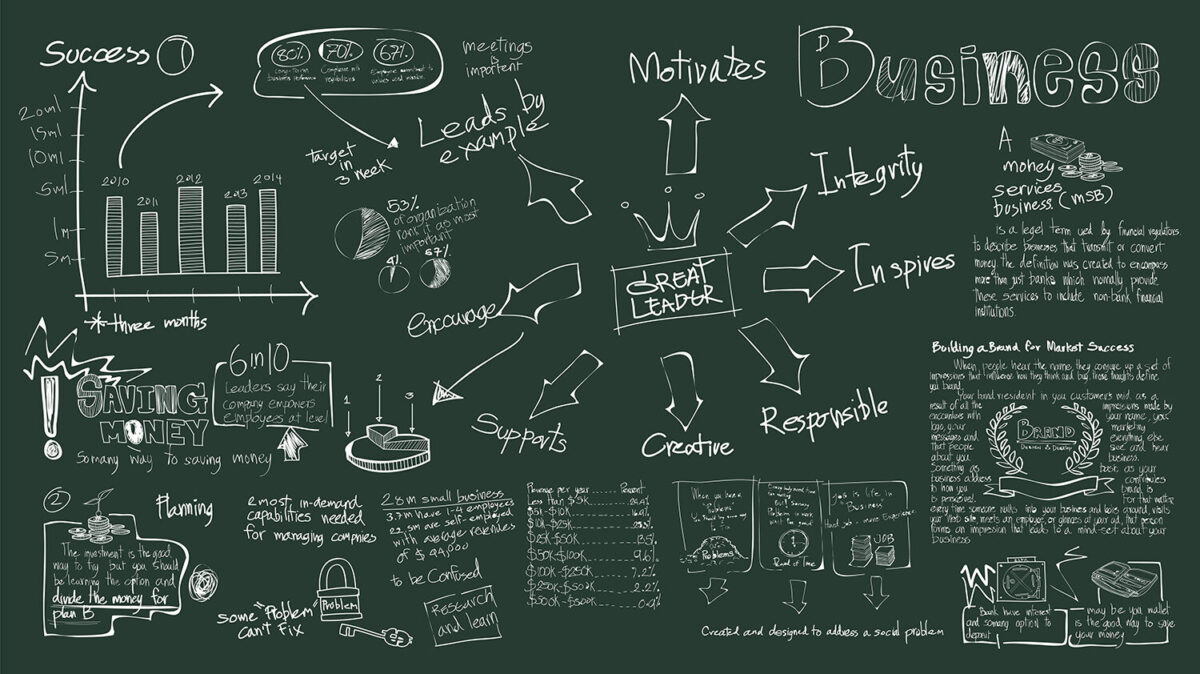 Success
20ml
15ml
10ml
5ml
1m
5m
2010
2011
2012
2013
2014
three months
80%
70%
67%
meetings
is
important
Leads by
example
target
in
3 week
53%
of organization
rank it as most
important
4%
67%
Motivates
Integrity
Inspires
GREAT
LEADER
encourage
Supports
Creative
Responsible
Business
A
money
services
business (MSB)
is a legel term used by financial regulators
to describe bsinesses that transmit or convert
money. the definition was created to encompass
more than just banks which normally provide
these services to include non-bank financial
institutions.
! SAVING
MONEY
So many way to saving money
6 in 10
Leaders say their
company empowers
employees at level
1
2
3
Building a Brand for Market Success
When people hear the name, they conjure up a set of
impressions that influence how they think and buy. Those thoughts define
you brand.
Your brand resident in you customer's mid. as a
result of all the
impressions made by
encounters with
your name, your
logo, your
marketing
messages and
everything else
that people
see and hear
about you
business.
Something as
basic as your
business address
contributes
is how you
brand is
is perceived.
for that matter
every time someone walks into your business and looks around, visits
your Web site, meets an employer, or glances at your ad, that person
forms an impression that leads to a mind-set about your
business
BRAND
2
Planning
The investment is the good
way to try but you should
be learning the option and
divide the money for
plan B
2 most in-demand
capabilities needed
for managing compnies
some "Problem"
can't Fix
Problem
2.8 m small business
3.7m have 1-4 employees
22.5m are self-employed
with average revenues
of $ 44,000
to be Confused
Research
and learn
Revenue per year Percent
Less than $5K
$5K-$10K
$10K-$25K
$25K-$50K 13.5
$50K-$100K 9.6%
$100K-$250K 7.2%
$250K-$500K 2.2%
$300K-$500K 0.9%
When you have a
Problem
Problems
Round of Time
Job is life in
Business
Hard job - more Experience
JOB
Created and designed to address a social problem
Bank have interest
and somany option to
deposit
may be you wallet
is the good way to save
your money